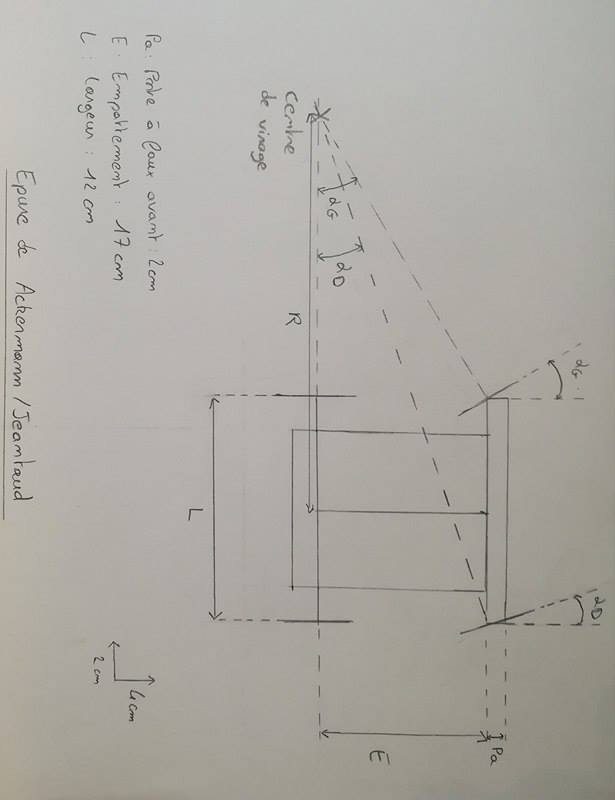 αG
αD
Pa
E
αG
αD
R
Centre
de virage
L
Pa : Porte à faux avant : 2cm
E : Empattement : 17 cm
L : Largeur : 12 cm
4 cm
2 cm
Epure de Ackermann / Jeantaud